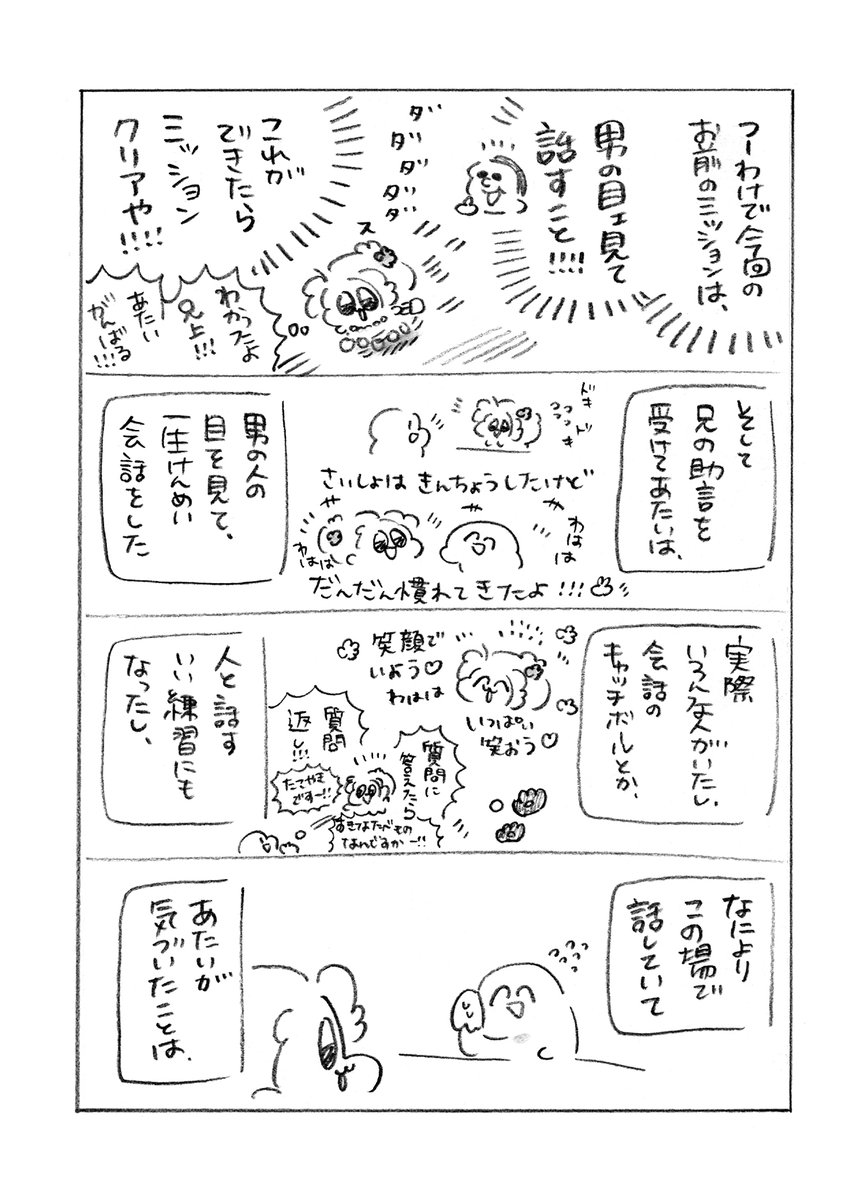 つーわけで今回の
お前のミッションは、
男の目ェ見て
話すこと!!!!
ダダダダダ
これが
できたら
ミッション
クリアや!!!!
ス
わかったよ
兄上!!!
あたい
がんばる!!!
そして
兄の助言を
受けてあたいは、
ドキドキ
さいしょは きんちょうしたけど
わはは
わはは
だんだん慣れてきたよ!!!
男の人の
目を見て、
一生けんめい
会話をした
実際
いろんな人がいたし、
会話の
キャッチボールとか、
笑顔で
いよう♡
わはは
いっぱい
笑おう♡
質問に
答えたら
質問
返し!!!
たてやきですー!!
すきなたべもの
なんですかー!!
人と話す
いい練習にも
なったし、
なにより
この場で
話していて
あたいが
気づいたことは、